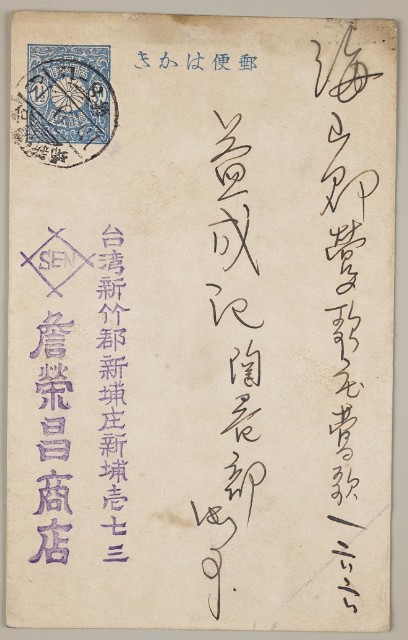 郵便はかき
海山郡鶯歌庄鶯歌一二六
益成記陶器部
台湾新竹郡新埔庄新埔壱七三
SEN
詹榮昌商店